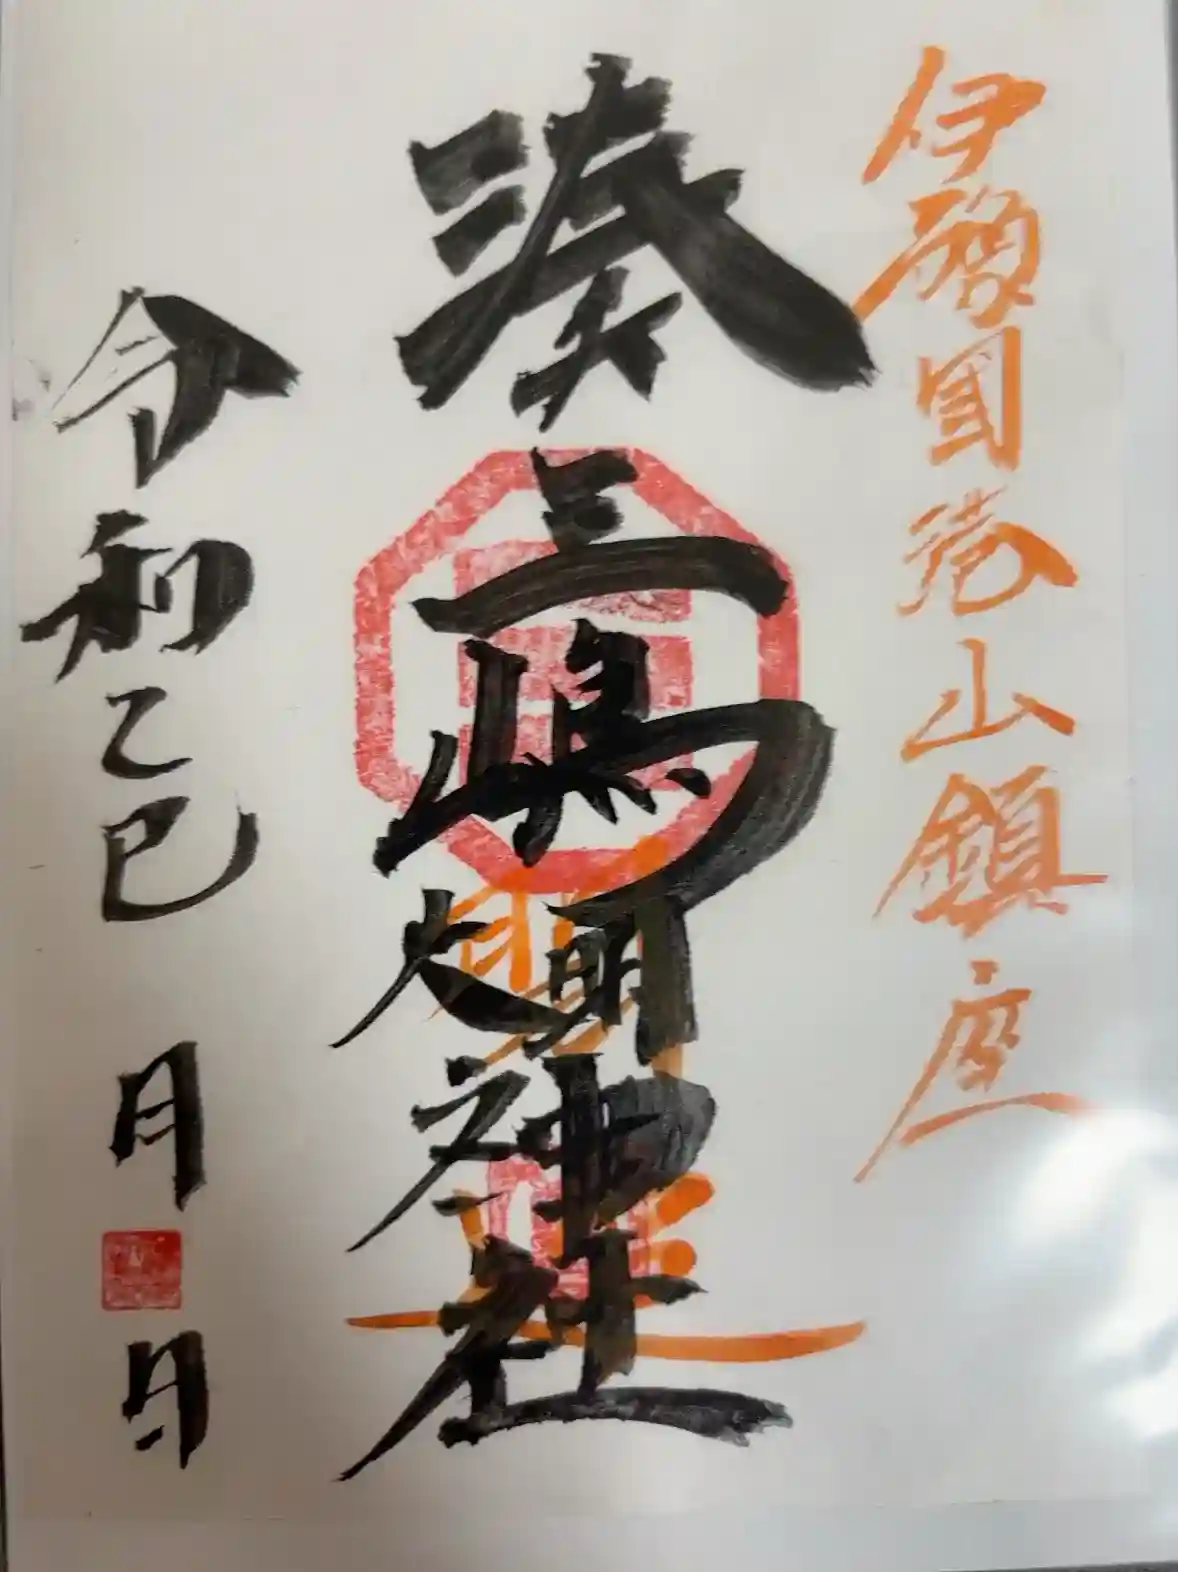 伊豫國港山鎮座
湊三嶋大明神社
令和乙巳 月 日